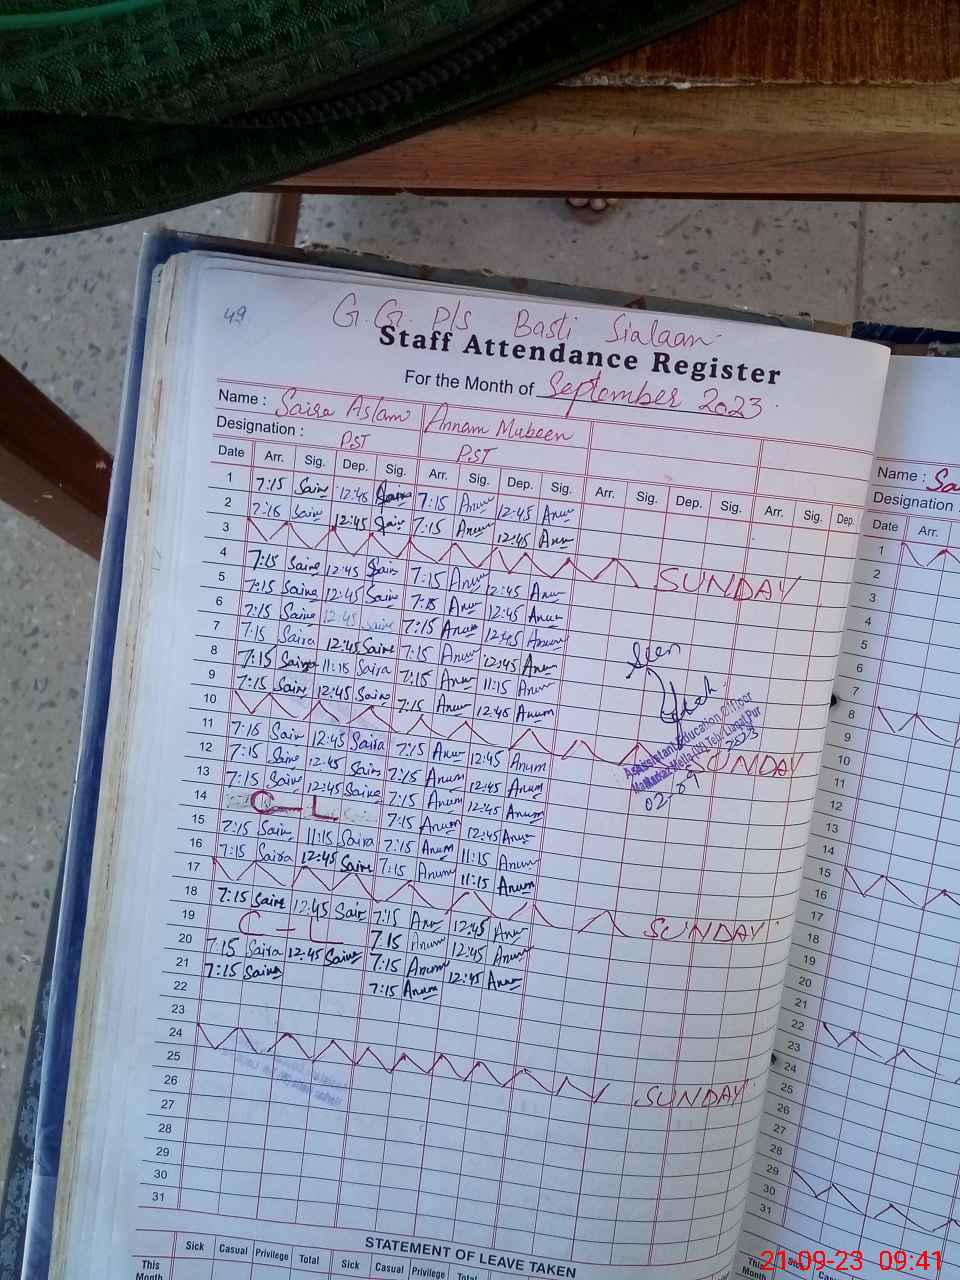 49
G.G. P/S Basti Sialaan
Staff Attendance Register
For the Month of September 2023
Name : Saira Aslam Annam Mubeen
Designation : PST PST
Date Arr. Sig. Dep. Sig. Arr. Sig. Dep. Sig. Arr. Sig. Dep. Sig. Arr. Sig. Dep.
1 7:15 Saira 12:45 Saira 7:15 Anum 12:45 Anum
2 7:15 Saira 12:45 Saira 7:15 Anum 12:45 Anum
3 SUNDAY
4 7:15 Saira 12:45 Saira 7:15 Anum 12:45 Anum
5 7:15 Saira 12:45 Saira 7:15 Anum 12:45 Anum
6 7:15 Saira 12:45 Saira 7:15 Anum 12:45 Anum
7 7:15 Saira 12:45 Saira 7:15 Anum 12:45 Anum
8 7:15 Saira 11:15 Saira 7:15 Anum 11:15 Anum
9 7:15 Saira 12:45 Saira 7:15 Anum 12:45 Anum
Seen
Assistant Education Officer
02/09
2023
10 SUNDAY
11 7:15 Saira 12:45 Saira 7:15 Anum 12:45 Anum
12 7:15 Saira 12:45 Saira 7:15 Anum 12:45 Anum
13 7:15 Saira 12:45 Saira 7:15 Anum 12:45 Anum
14 C-L 7:15 Anum 12:45 Anum
15 7:15 Saira 11:15 Saira 7:15 Anum 11:15 Anum
16 7:15 Saira 12:45 Saira 7:15 Anum 11:15 Anum
17 SUNDAY
18 7:15 Saira 12:45 Saira 7:15 Anum 12:45 Anum
19 C-L 7:15 Anum 12:45 Anum
20 7:15 Saira 12:45 Saira 7:15 Anum 12:45 Anum
21 7:15 Saira 7:15 Anum
22
23
24 SUNDAY
25
26
27
28
29
30
31
STATEMENT OF LEAVE TAKEN
Sick Casual Privilege Total Sick Casual Privilege Total
This Month
Name : Sa
Designation :
Date Arr.
1
2
3
4
5
6
7
8
9
10
11
12
13
14
15
16
17
18
19
20
21
22
23
24
25
26
27
28
29
30
31
This Month
21-09-23 09:41